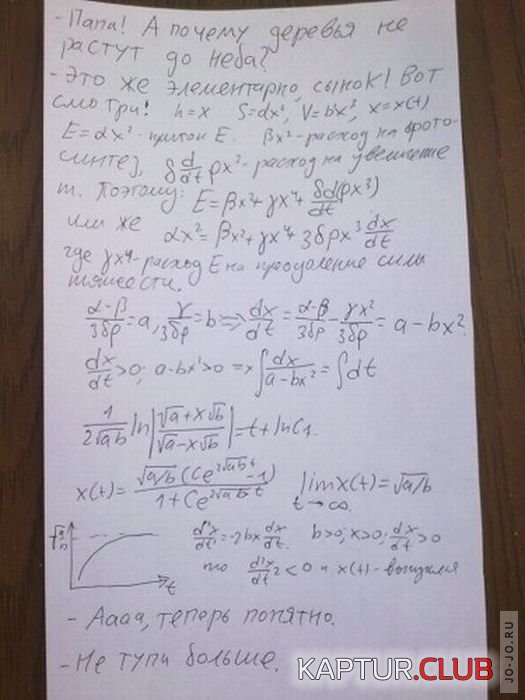 - Папа! А почему деревья не
растут до неба?
- Это же элементарно, сынок! Вот
смотри! h=x S=dx², V=bx³, x=x(t)
E=αx² - приток E. βx² - расход на фото-
синтез, δ d/dt ρx³ - расход на увеличение
m. Поэтому: E=βx²+γx⁴+ δd(ρx³)/dt
или же αx²=βx²+γx⁴+3δρx² dx/dt
где γx⁴ - расход E на преодоление силы
тяжести.
(α-β)/3δρ=a, γ/3δρ=b => dx/dt = (α-β)/3δρ - γx²/3δρ = a-bx².
dx/dt>0; a-bx²>0 => ∫dx/(a-bx²)=∫dt
1/(2√ab) ln|(√a+x√b)/(√a-x√b)|=t+lnC₁.
x(t)= √a/b (Ce^(2√ab t)-1)/(1+Ce^(2√ab t)) lim x(t)=√a/b
t→∞
√a/b d²x/dt²=-2bx dx/dt. b>0; x>0; dx/dt>0
t то d²x/dt²<0 и x(t) - выпуклая
- Аааа, теперь понятно.
- Не тупи больше.
KAPTUR.CLUB
JO-JO.RU